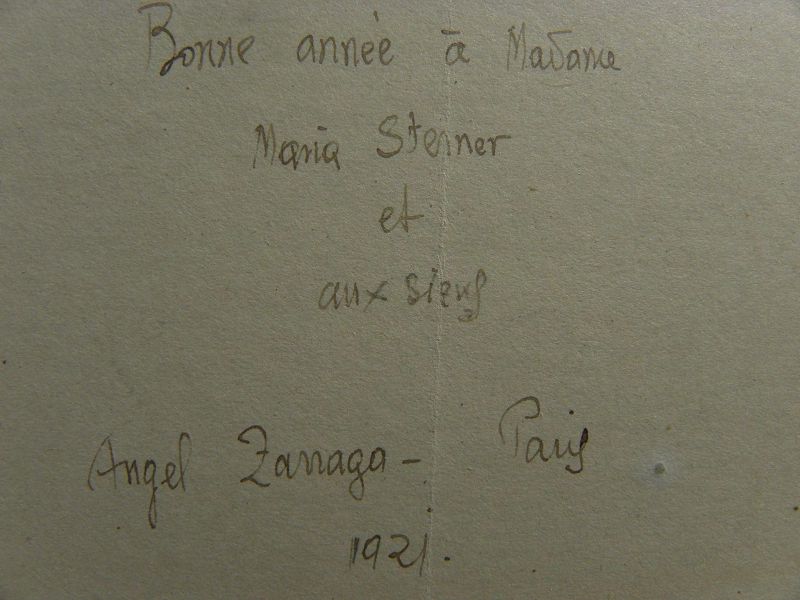 Bonne année à Madame
Maria Sterner
et
aux siens
Angel Zarraga - Paris
1921.